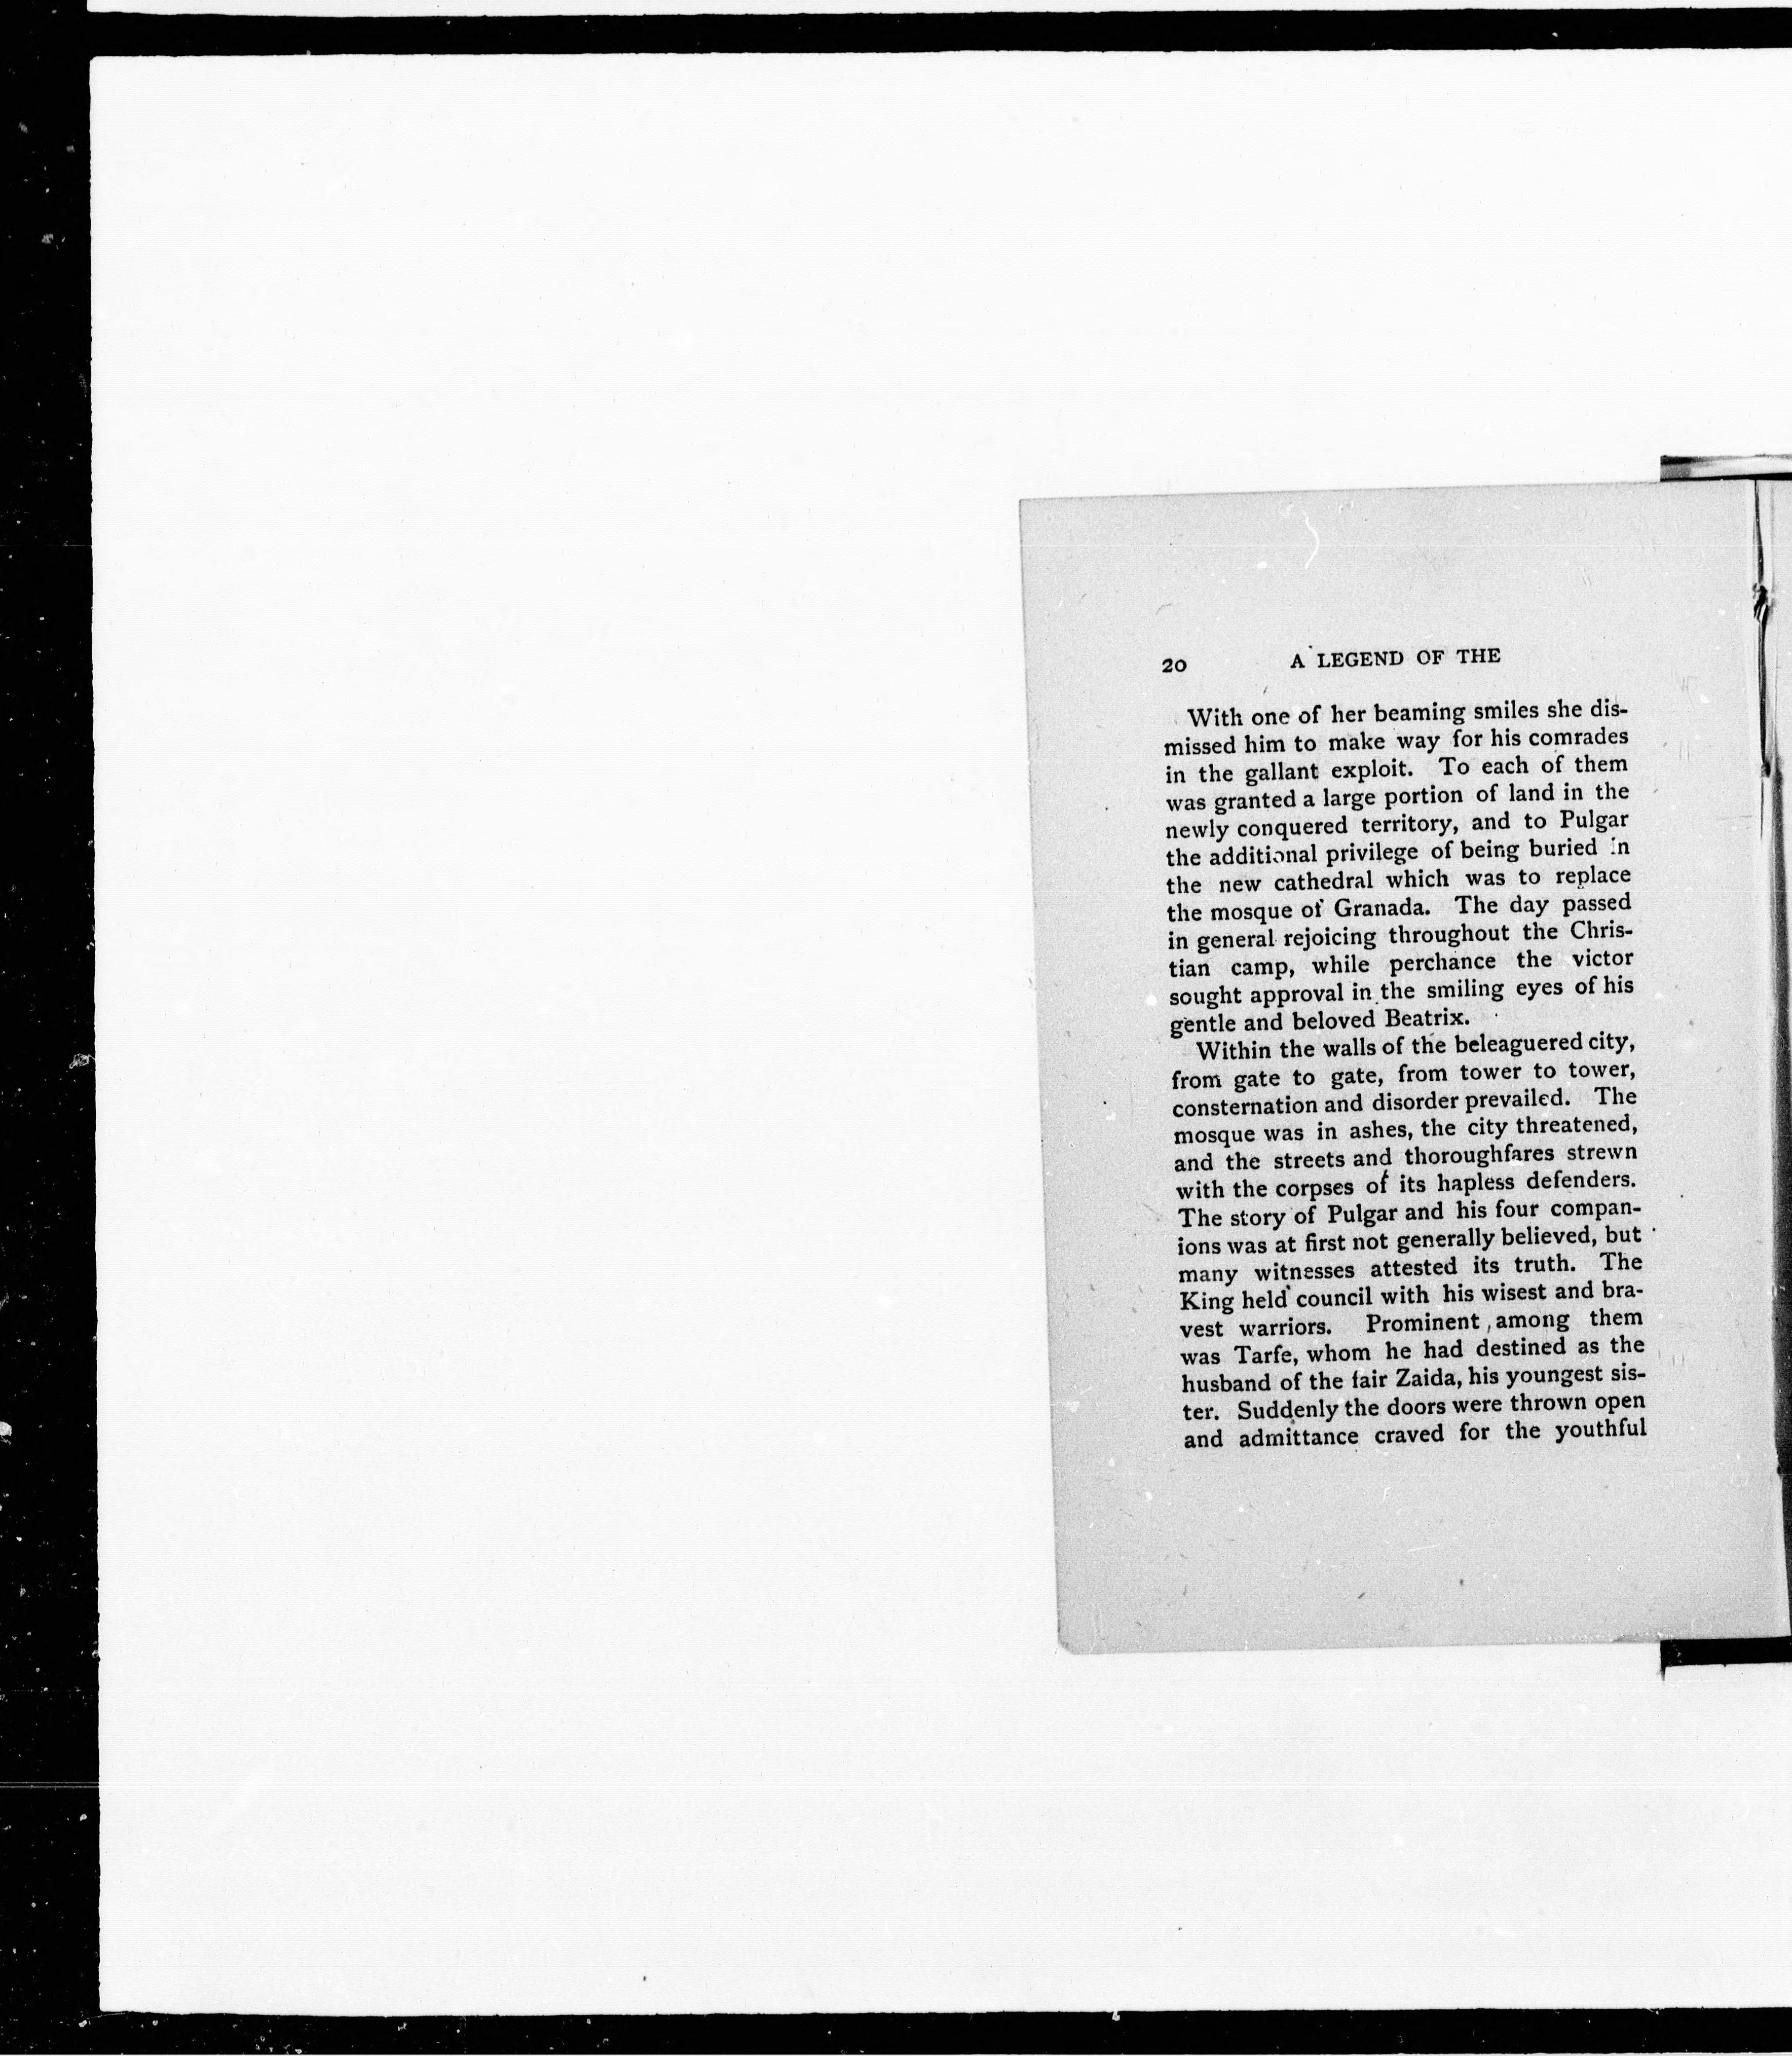 20 A LEGEND OF THE
With one of her beaming smiles she dis-
missed him to make way for his comrades
in the gallant exploit. To each of them
was granted a large portion of land in the
newly conquered territory, and to Pulgar
the additional privilege of being buried in
the new cathedral which was to replace
the mosque of Granada. The day passed
in general rejoicing throughout the Chris-
tian camp, while perchance the victor
sought approval in the smiling eyes of his
gentle and beloved Beatrix.
Within the walls of the beleaguered city,
from gate to gate, from tower to tower,
consternation and disorder prevailed. The
mosque was in ashes, the city threatened,
and the streets and thoroughfares strewn
with the corpses of its hapless defenders.
The story of Pulgar and his four compan-
ions was at first not generally believed, but
many witnesses attested its truth. The
King held council with his wisest and bra-
vest warriors. Prominent among them
was Tarfe, whom he had destined as the
husband of the fair Zaida, his youngest sis-
ter. Suddenly the doors were thrown open
and admittance craved for the youthful